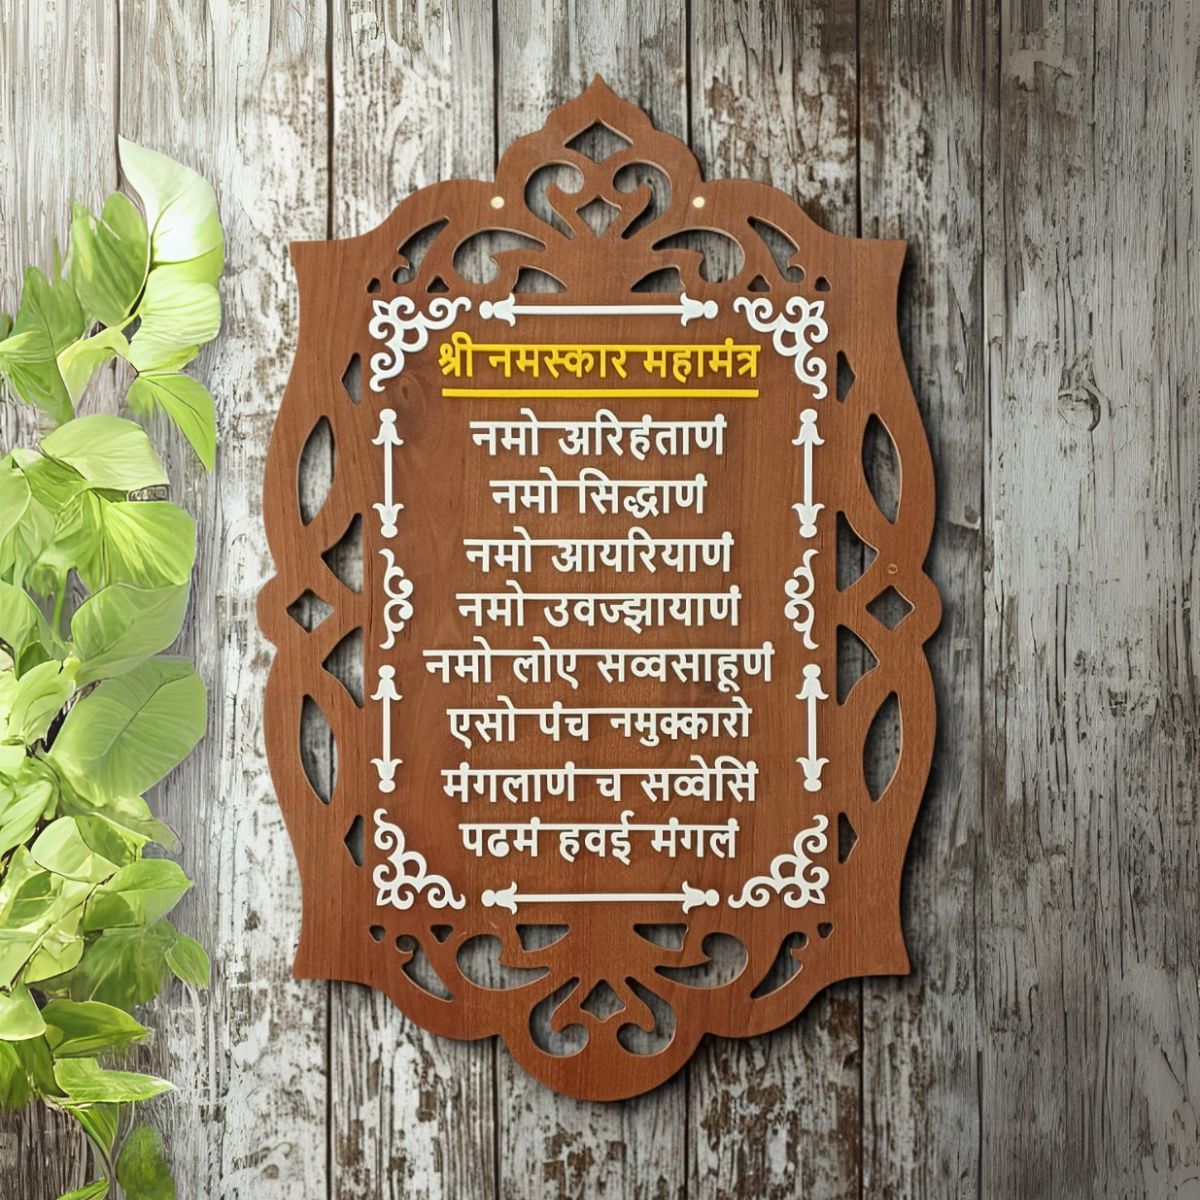 श्री नमस्कार महामंत्र
नमो अरिहंताणं
नमो सिद्धाणं
नमो आयरियाणं
नमो उवज्झायाणं
नमो लोए सव्वसाहूणं
एसो पंच नमुक्कारो
मंगलाणं च सव्वेसिं
पढमं हवई मंगलं